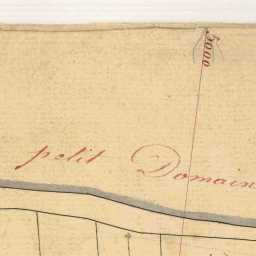 5000
petit Domain